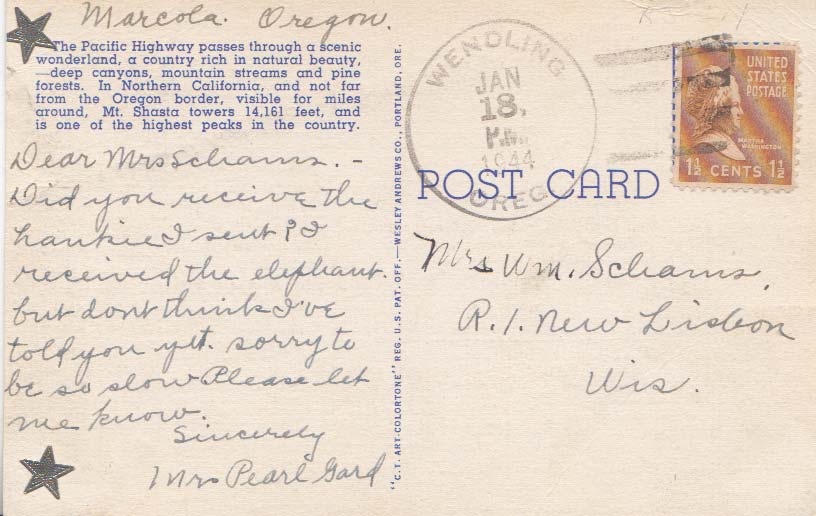 Marcola. Oregon.
The Pacific Highway passes through a scenic
wonderland, a country rich in natural beauty,
—deep canyons, mountain streams and pine
forests. In Northern California, and not far
from the Oregon border, visible for miles
around, Mt. Shasta towers 14,161 feet, and
is one of the highest peaks in the country.
Dear Mrs Schams. -
Did you receive the
hankie I sent? I
received the elephant.
but dont think I've
told you yet. sorry to
be so slow Please let
me know.
Sincerely
Mrs Pearl Gard
"C.T. ART-COLORTONE" REG. U.S. PAT. OFF.—WESLEY ANDREWS CO., PORTLAND, ORE.
WENDLING
JAN
18,
P.M.
1944
OREG
UNITED
STATES
POSTAGE
MARTHA
WASHINGTON
1½ CENTS 1½
POST CARD
Mrs Wm. Schams,
R.1. New Lisbon
Wis.